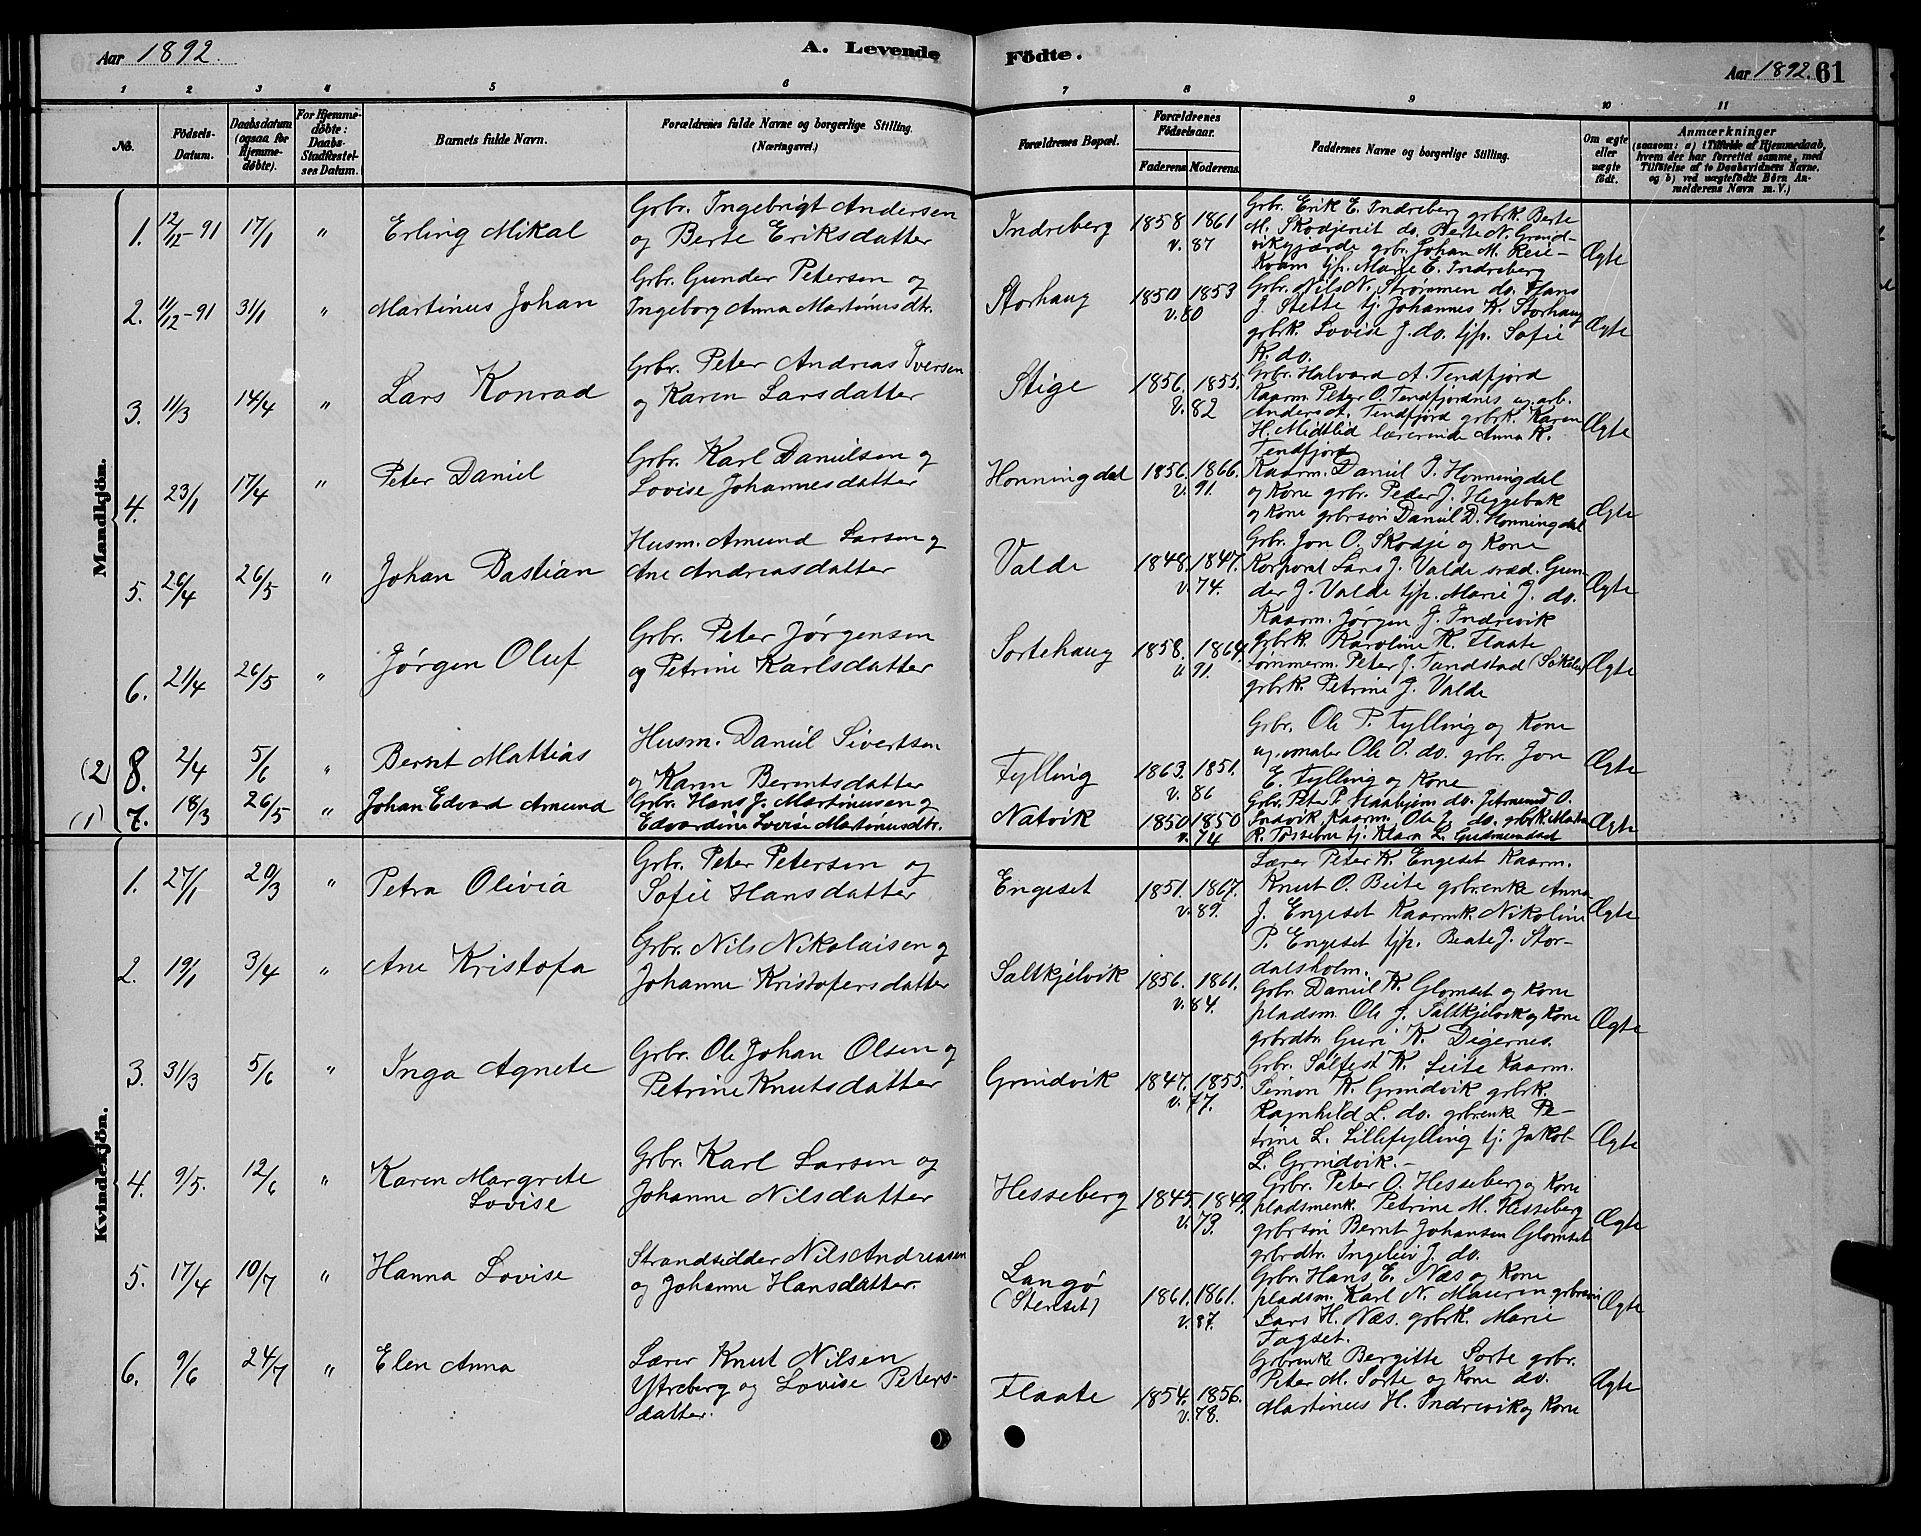 Aar 1892.
A. Levende Födte.
Aar 1892. 61
1 2 3 4 5 6 7 8 9 10 11
No.
Födsels-Datum.
Daabsdatum (ogsaa for Hjemme-døbte).
For Hjemme-døbte: Daabs-Stadfæstel-ses Datum.
Barnets fulde Navn.
Forældrenes fulde Navne og borgerlige Stilling. (Næringsvei.)
Forældrenes Bopæl.
Forældrenes Födselsaar.
Faderens. Moderens.
Faddernes Navne og borgerlige Stilling.
Om ægte eller uægte født.
Anmærkninger
(saasom: a) i Tilfælde af Hjemmedaab,
hvem der har forrettet samme, med
Tilføielse af to Daabsvidners Navne,
og b) ved uægtefødte Børn An-
melderens Navn m. V.)
Mandkjön.
1. 12/12-91 17/1 " Erling Mikal
Grbr. Ingebrigt Andersen
og Berte Eriksdatter
Indreberg 1858 1861
v. 87
Grbr. Erik E. Indreberg grbrk. Berte
M. Skodjereit do. Berte N. Grind-
vikgjærde grbr. Johan M. Reie-
Kvam tjp. Marie E. Indreberg
Ægte
2. 11/12-91 31/1 " Martinus Johan
Grbr. Gunder Petersen og
Ingeborg Anna Martinusdtr.
Storhaug 1850 1853
v. 80
Grbr. Nils N. Strømmen do. Hans
J. Stette tj. Johannes K. Storhaug
grbrk. Lovise J. do. tjp. Sofie
K. do.
Ægte
3. 11/3 14/4 " Lars Konrad
Grbr. Peter Andreas Iversen
og Karen Larsdatter
Stige 1856. 1855.
v. 82
Grbr. Halvard A. Tendfjord
Kaarm. Peter O. Tendfjordnes ug. arb.
Anders A. Tendfjord grbrk. Karen
H. Midtlid lærerinde Anna K.
Tendfjord
Ægte
4. 23/1 17/4 " Peter Daniel
Grbr. Karl Danielsen og
Lovise Johannesdatter
Honningdal 1856. 1866.
v. 91.
Kaarm. Daniel P. Honningdal
og Kone grbr. Peder J. Heggebak
og Kone grbrsøn Daniel D. Honningdal
Ægte
5. 26/4 26/5 " Johan Bastian
Husm. Amund Larsen og
Ane Andreasdatter
Valde 1848. 1847.
v. 74.
Grbr. Jon O. Skodje og Kone
Korporal Lars J. Valde sræd. Gun-
der J. Valde tjp. Marie J. do.
Ægte
6. 21/4 26/5 " Jørgen Oluf
Grbr. Peter Jørgensen
og Petrine Karlsdatter
Sortehaug 1858. 1864.
v. 91.
Kaarm. Jørgen J. Indrevik
grbrk. Karoline K. Flaate
Lommerm. Peter J. Tundstad
grbrk. Petrine J. Valde
Ægte
(2) 8. 2/4 5/6 " Bernt Mattias
Husm. Daniel Sivertsen
og Karen Berntsdatter
Fylling 1863. 1851.
v. 86
Grbr. Ole P. Fylling og Kone
ug. maler Ole O. do. grbr. Jon
E. Fylling og Kone
Ægte
(1) 7. 18/3 26/5 " Johan Edvard Amund
Grbr. Hans J. Martinussen og
Edvardine Lovise Martinusdtr.
Natvik 1850 1850
v. 74
Grbr. Peter P. Haahjem do. Jetmund O.
Indvik, Kaarm. Ole J. do. grbrk. Marta
R. Tøssebro tj. Klara L. Gudmundset
Ægte
Kvindekjön.
1. 27/1 20/3 " Petra Olivia
Grbr. Peter Petersen og
Sofie Hansdatter
Engeset 1851. 1867.
v. 89.
Lærer Peter K. Engeset Kaarm.
Knut O. Beite grbrenke Anna
J. Engeset Kaarmk. Nikoline
P. Engeset tjp. Beate J. Stor-
dalsholm.
Ægte
2. 19/1 3/4 " Ane Kristofa
Grbr. Nils Nikolaisen og
Johanne Kristofersdatter
Saltkjelvik 1856. 1861.
v. 84.
Grbr. Daniel K. Glomset og Kone
pladsm. Ole J. Saltkjelvik og Kone
grbrdtr. Guri K. Digernes.
Ægte
3. 31/3 5/6 " Inga Agnete
Grbr. Ole Johan Olsen og
Petrine Knutsdatter
Grindvik 1847. 1855.
v. 77.
Grbr. Sølfest K. Leite Kaarm.
Simon K. Grindvik grbrk.
Ragnhild L. do. grbrenke Pe-
trine L. Lillefylling tj. Jakob
L. Grindvik.-
Ægte
4. 9/5. 12/6 " Karen Margrete
Lovise
Grbr. Karl Larsen og
Johanne Nilsdatter
Hesseberg 1845. 1849.
v. 73.
Grbr. Peter O. Hesseberg og Kone
pladsmenk. Petrine M. Hesseberg
grbrsøn Bernt Johansen Glomset
grbrdtr. Ingeliv J. do.
Ægte
5. 17/4 10/7 " Hanna Lovise
Strandsidder Nils Andreassen
og Johanne Hansdatter.
Langø
(Stenset) 1861. 1861.
v. 87.
Grbr. Hans E. Næs og Kone
pladsm. Karl N. Mauren grbrsøn
Lars H. Næs. grbrk. Marie
Fagset.
Ægte
6. 9/6 24/7 " Elen Anna
Lærer Knut Nilsen
Ytreberg og Lovise Peters-
datter.
Flaate 1854. 1856.
v. 78.
Grbrenke Bergitte Sorte grbr.
Peter M. Sorte og Kone do.
Martinus H. Indrevik og Kone
Ægte